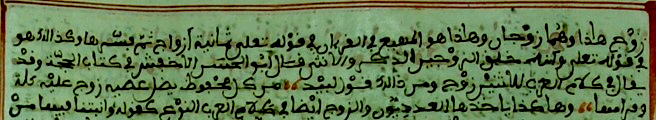 زوج هاذا وهما زوجان وهاذا هو المتبع في القرءان في قوله تعلى ثمانية أزواج ثم فسرها وكذالك هو
في قوله تعلى وأنه خلق الزوجين الذكر والانثى قال أبو الحسن الأخفش في كتاب الحجة وقد
يقال في كلام العرب للاثنين زوج ومن ذالك قول لبيد من كل محفوف يظل عصيه زوج عليه كلة
وقرامها وهاكذا ياخذها العدديون والزوج ايضا في كلام العرب النوع كقوله وانبتنا فيها من